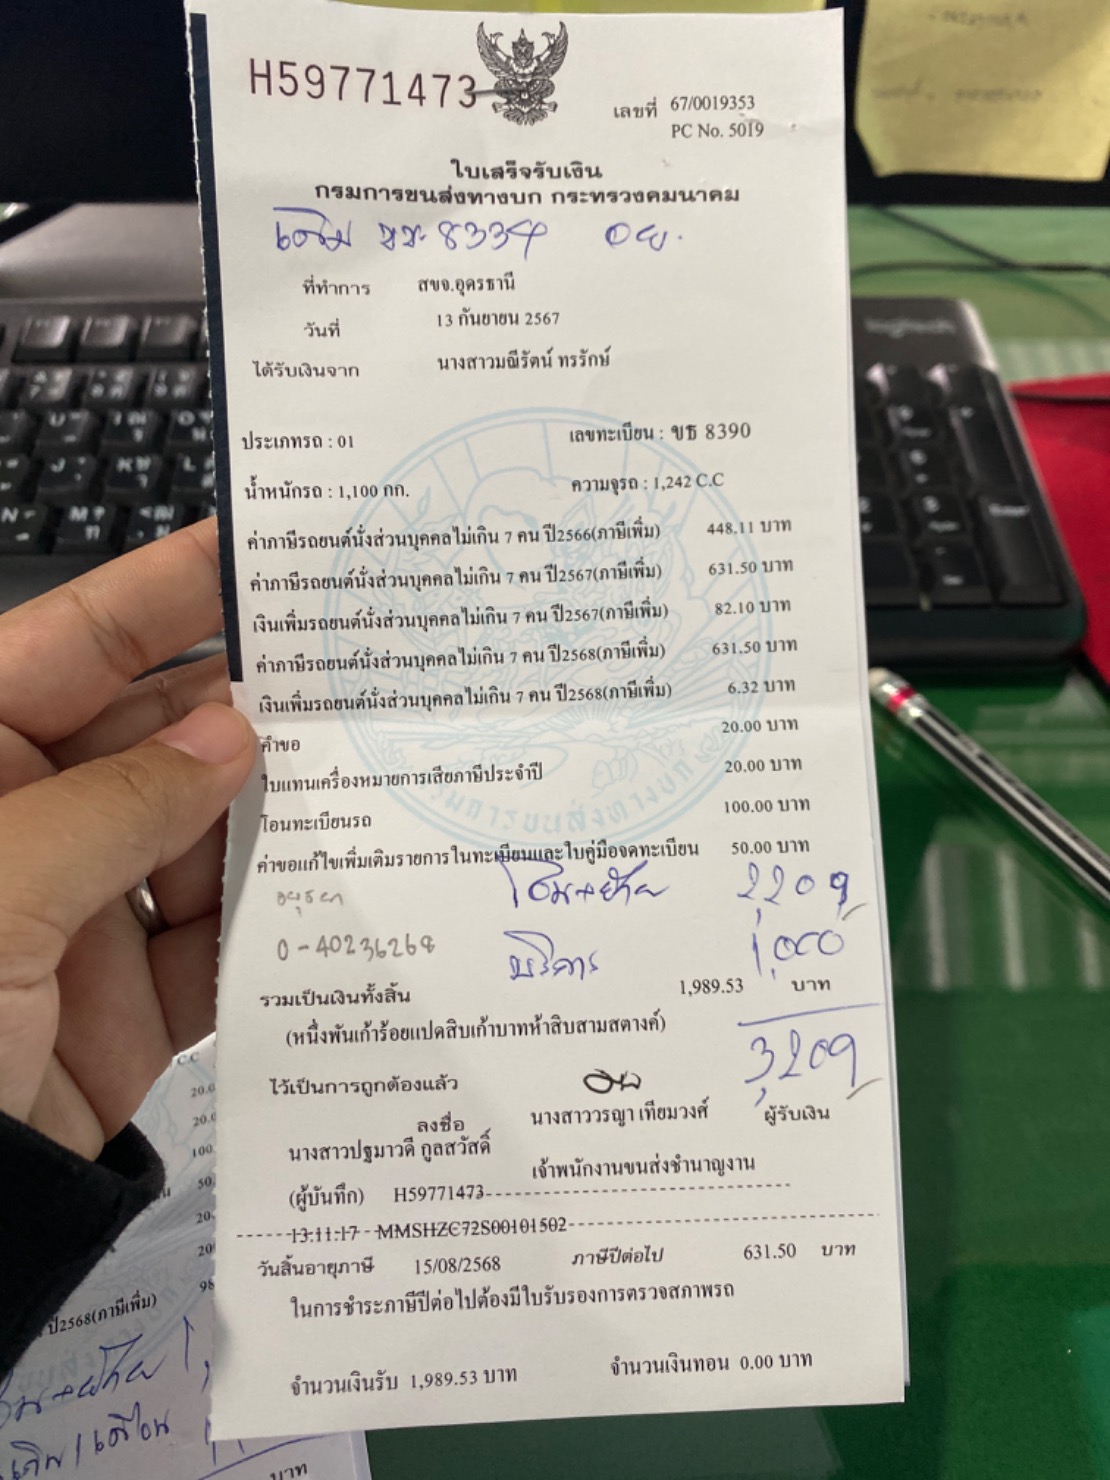 H59771473
เลขที่ 67/0019353
PC No. 5019
ใบเสร็จรับเงิน
กรมการขนส่งทางบก กระทรวงคมนาคม
เดิม ขฆ 8334 อย.
ที่ทำการ สขจ.อุดรธานี
วันที่ 13 กันยายน 2567
ได้รับเงินจาก นางสาวมณีรัตน์ ทรรักษ์
ประเภทรถ : 01 เลขทะเบียน : ขธ 8390
น้ำหนักรถ : 1,100 กก. ความจุรถ : 1,242 C.C
ค่าภาษีรถยนต์นั่งส่วนบุคคลไม่เกิน 7 คน ปี2566(ภาษีเพิ่ม) 448.11 บาท
ค่าภาษีรถยนต์นั่งส่วนบุคคลไม่เกิน 7 คน ปี2567(ภาษีเพิ่ม) 631.50 บาท
เงินเพิ่มรถยนต์นั่งส่วนบุคคลไม่เกิน 7 คน ปี2567(ภาษีเพิ่ม) 82.10 บาท
ค่าภาษีรถยนต์นั่งส่วนบุคคลไม่เกิน 7 คน ปี2568(ภาษีเพิ่ม) 631.50 บาท
เงินเพิ่มรถยนต์นั่งส่วนบุคคลไม่เกิน 7 คน ปี2568(ภาษีเพิ่ม) 6.32 บาท
คำขอ 20.00 บาท
ใบแทนเครื่องหมายการเสียภาษีประจำปี 20.00 บาท
โอนทะเบียนรถ 100.00 บาท
ค่าขอแก้ไขเพิ่มเติมรายการในทะเบียนและใบคู่มือจดทะเบียน 50.00 บาท
อยุธยา โอน+ย้าย 2,209
0-40236268 บริการ 1,000
รวมเป็นเงินทั้งสิ้น 1,989.53 บาท
(หนึ่งพันเก้าร้อยแปดสิบเก้าบาทห้าสิบสามสตางค์)
3,209
ไว้เป็นการถูกต้องแล้ว
ลงชื่อ นางสาววรญา เทียมวงศ์ ผู้รับเงิน
นางสาวปฐมาวดี กูลสวัสดิ์ เจ้าพนักงานขนส่งชำนาญงาน
(ผู้บันทึก) H59771473
13:11:17 MMSHZC72S00101502
วันสิ้นอายุภาษี 15/08/2568 ภาษีปีต่อไป 631.50 บาท
ในการชำระภาษีปีต่อไปต้องมีใบรับรองการตรวจสภาพรถ
จำนวนเงินรับ 1,989.53 บาท จำนวนเงินทอน 0.00 บาท
ปี2568(ภาษีเพิ่ม)
บาท
logitech